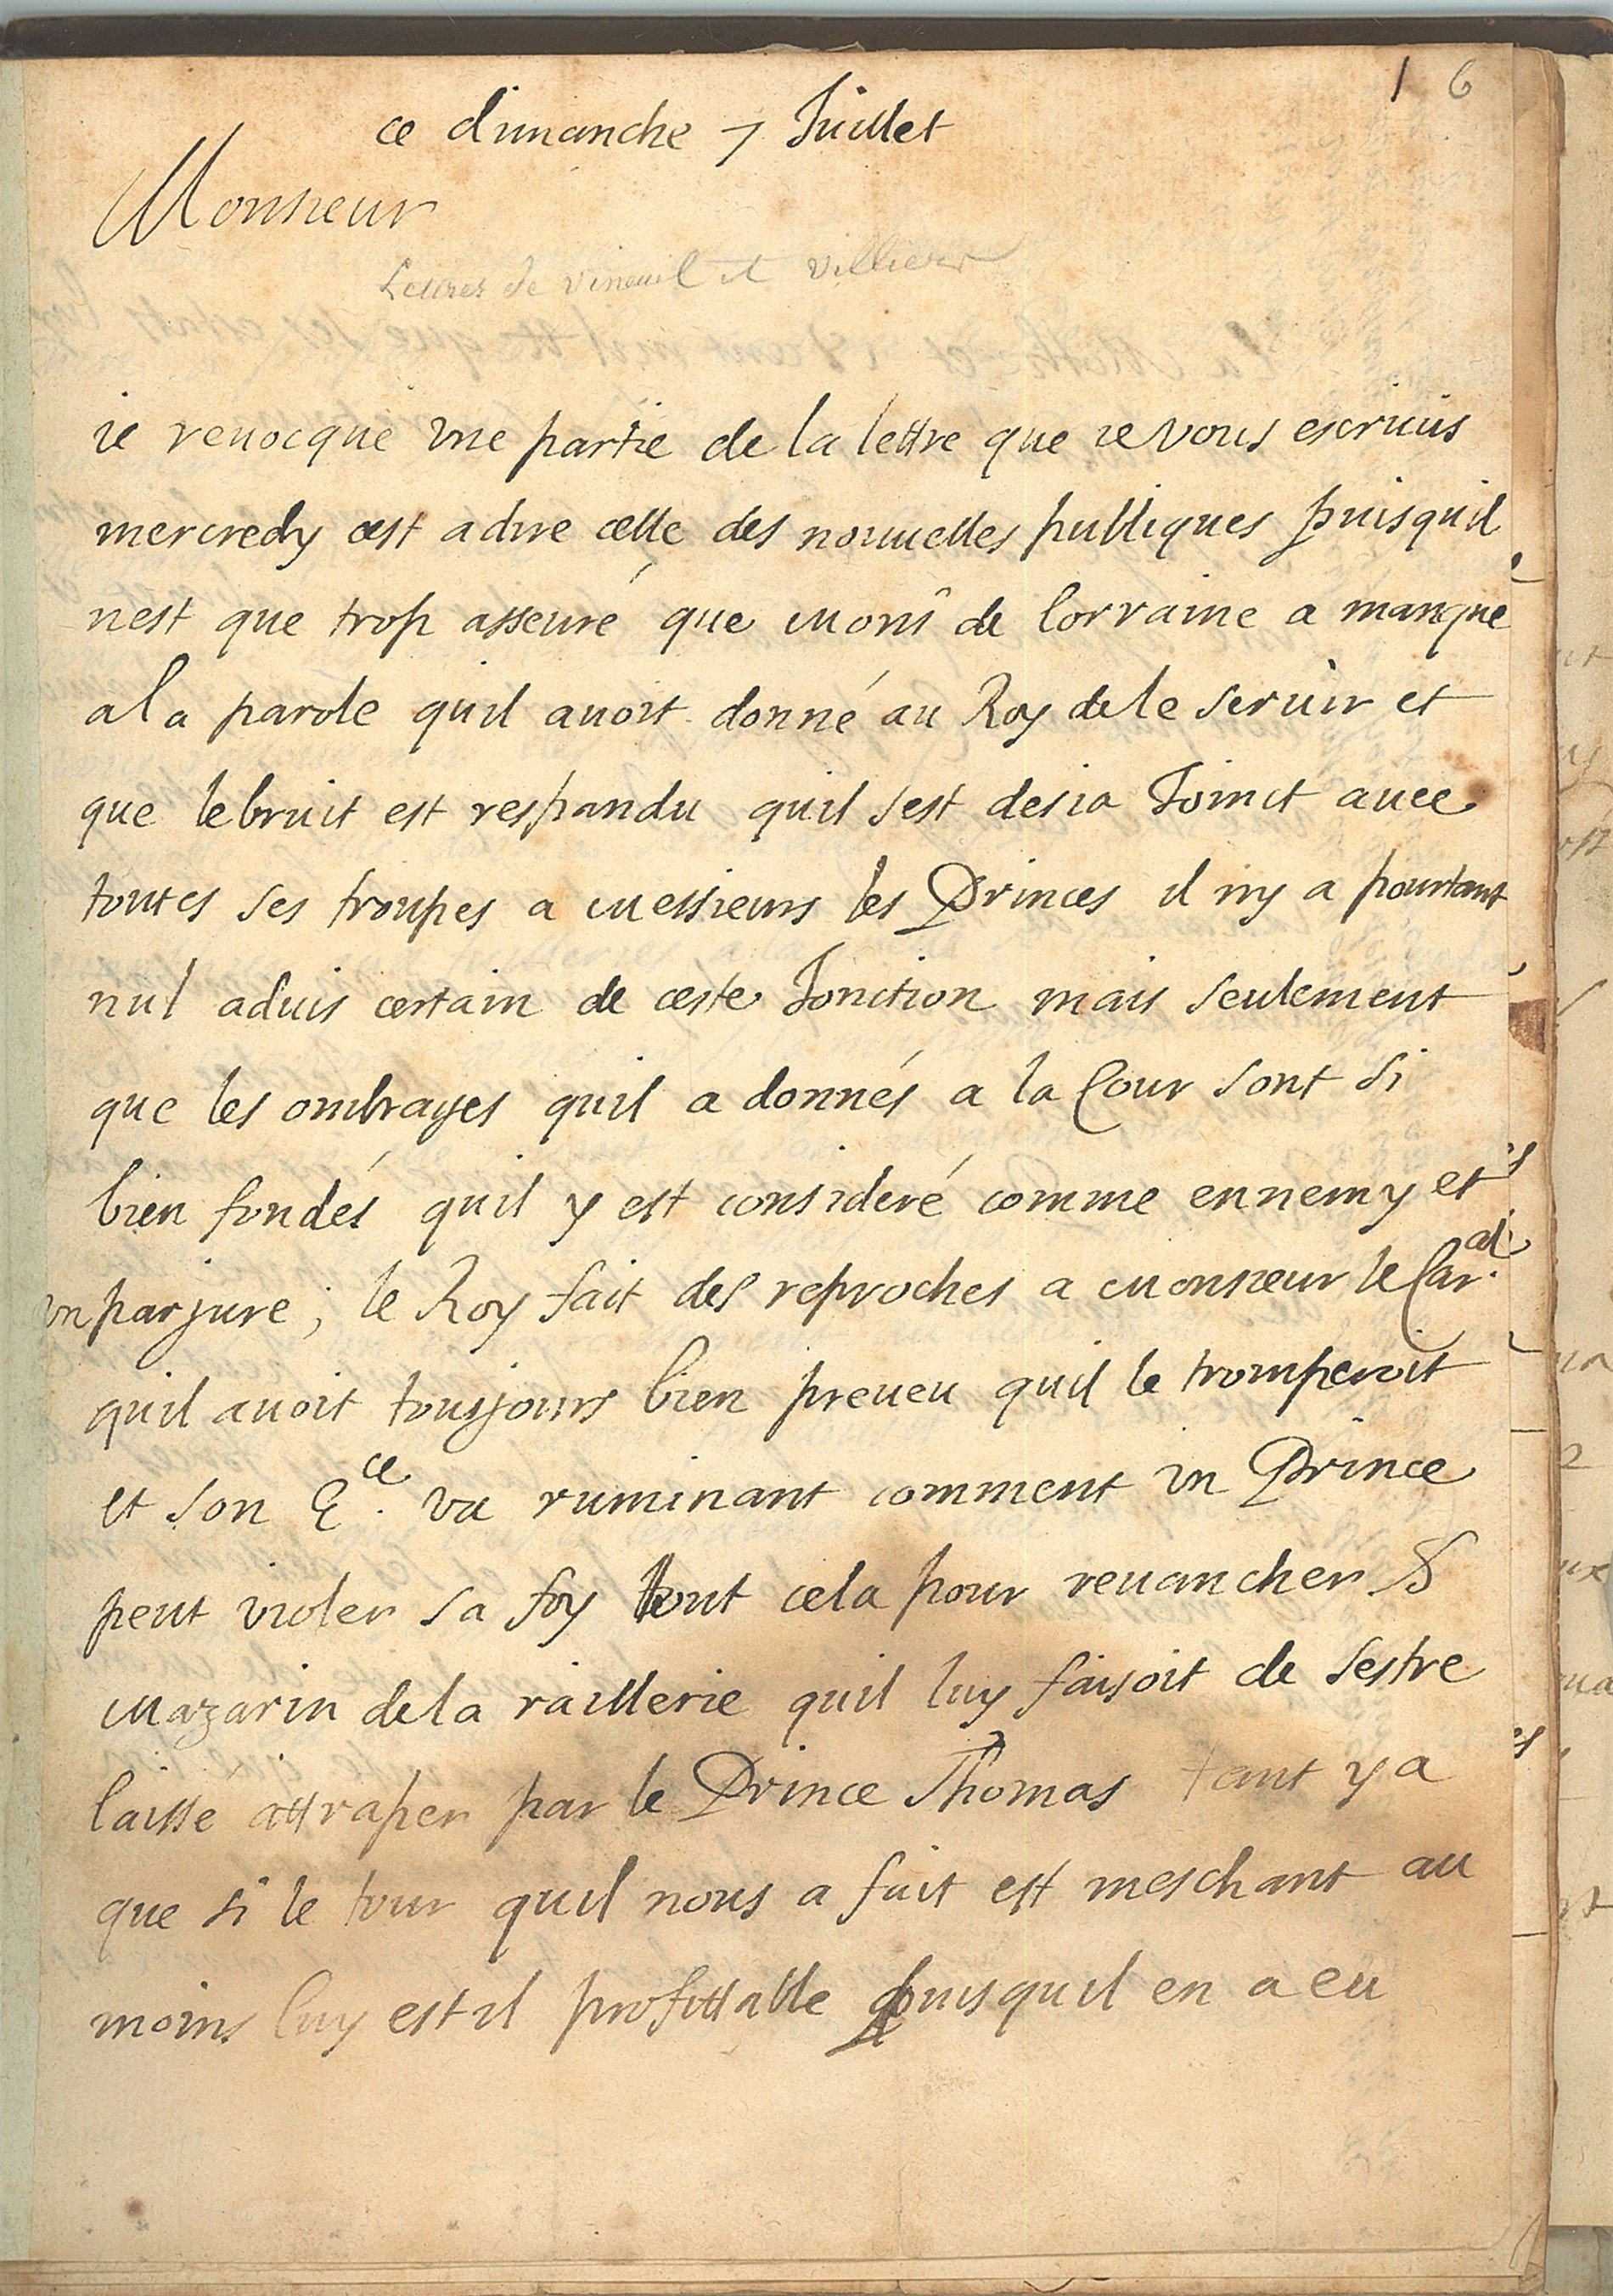 1 6
ce dimanche 7 Juillet
Monsieur
Lettres de Vineuil et Villiers
ie reuocque vne partie de la lettre que ie vous escriuis
mercredy cest adire celle des nouuelles publiques puisquil
nest que trop asseuré que monsr de lorraine a manqué
a la parole quil auoit donné au Roy de le seruir et
que le bruit est respandu quil sest desia Joinct auec
toutes ses troupes a messieurs les Princes il ny a pourtant
nul aduis certain de ceste Jonction mais seulement
que les ombrages quil a donnés a la Cour sont si
bien fondés quil y est consideré comme ennemy et
vn parjure; le Roy fait des reproches a monsieur le Car.al
quil auoit tousjours bien preueu quil le tromperoit
et son E.ce va ruminant comment vn Prince
peut violer sa foy tout cela pour reuancher le
mazarin de la raillerie quil luy faisoit de sestre
laissé attraper par le Prince Thomas tant y a
que si le tour quil nous a fait est meschant au
moins luy est il profittable puisquil en a eu